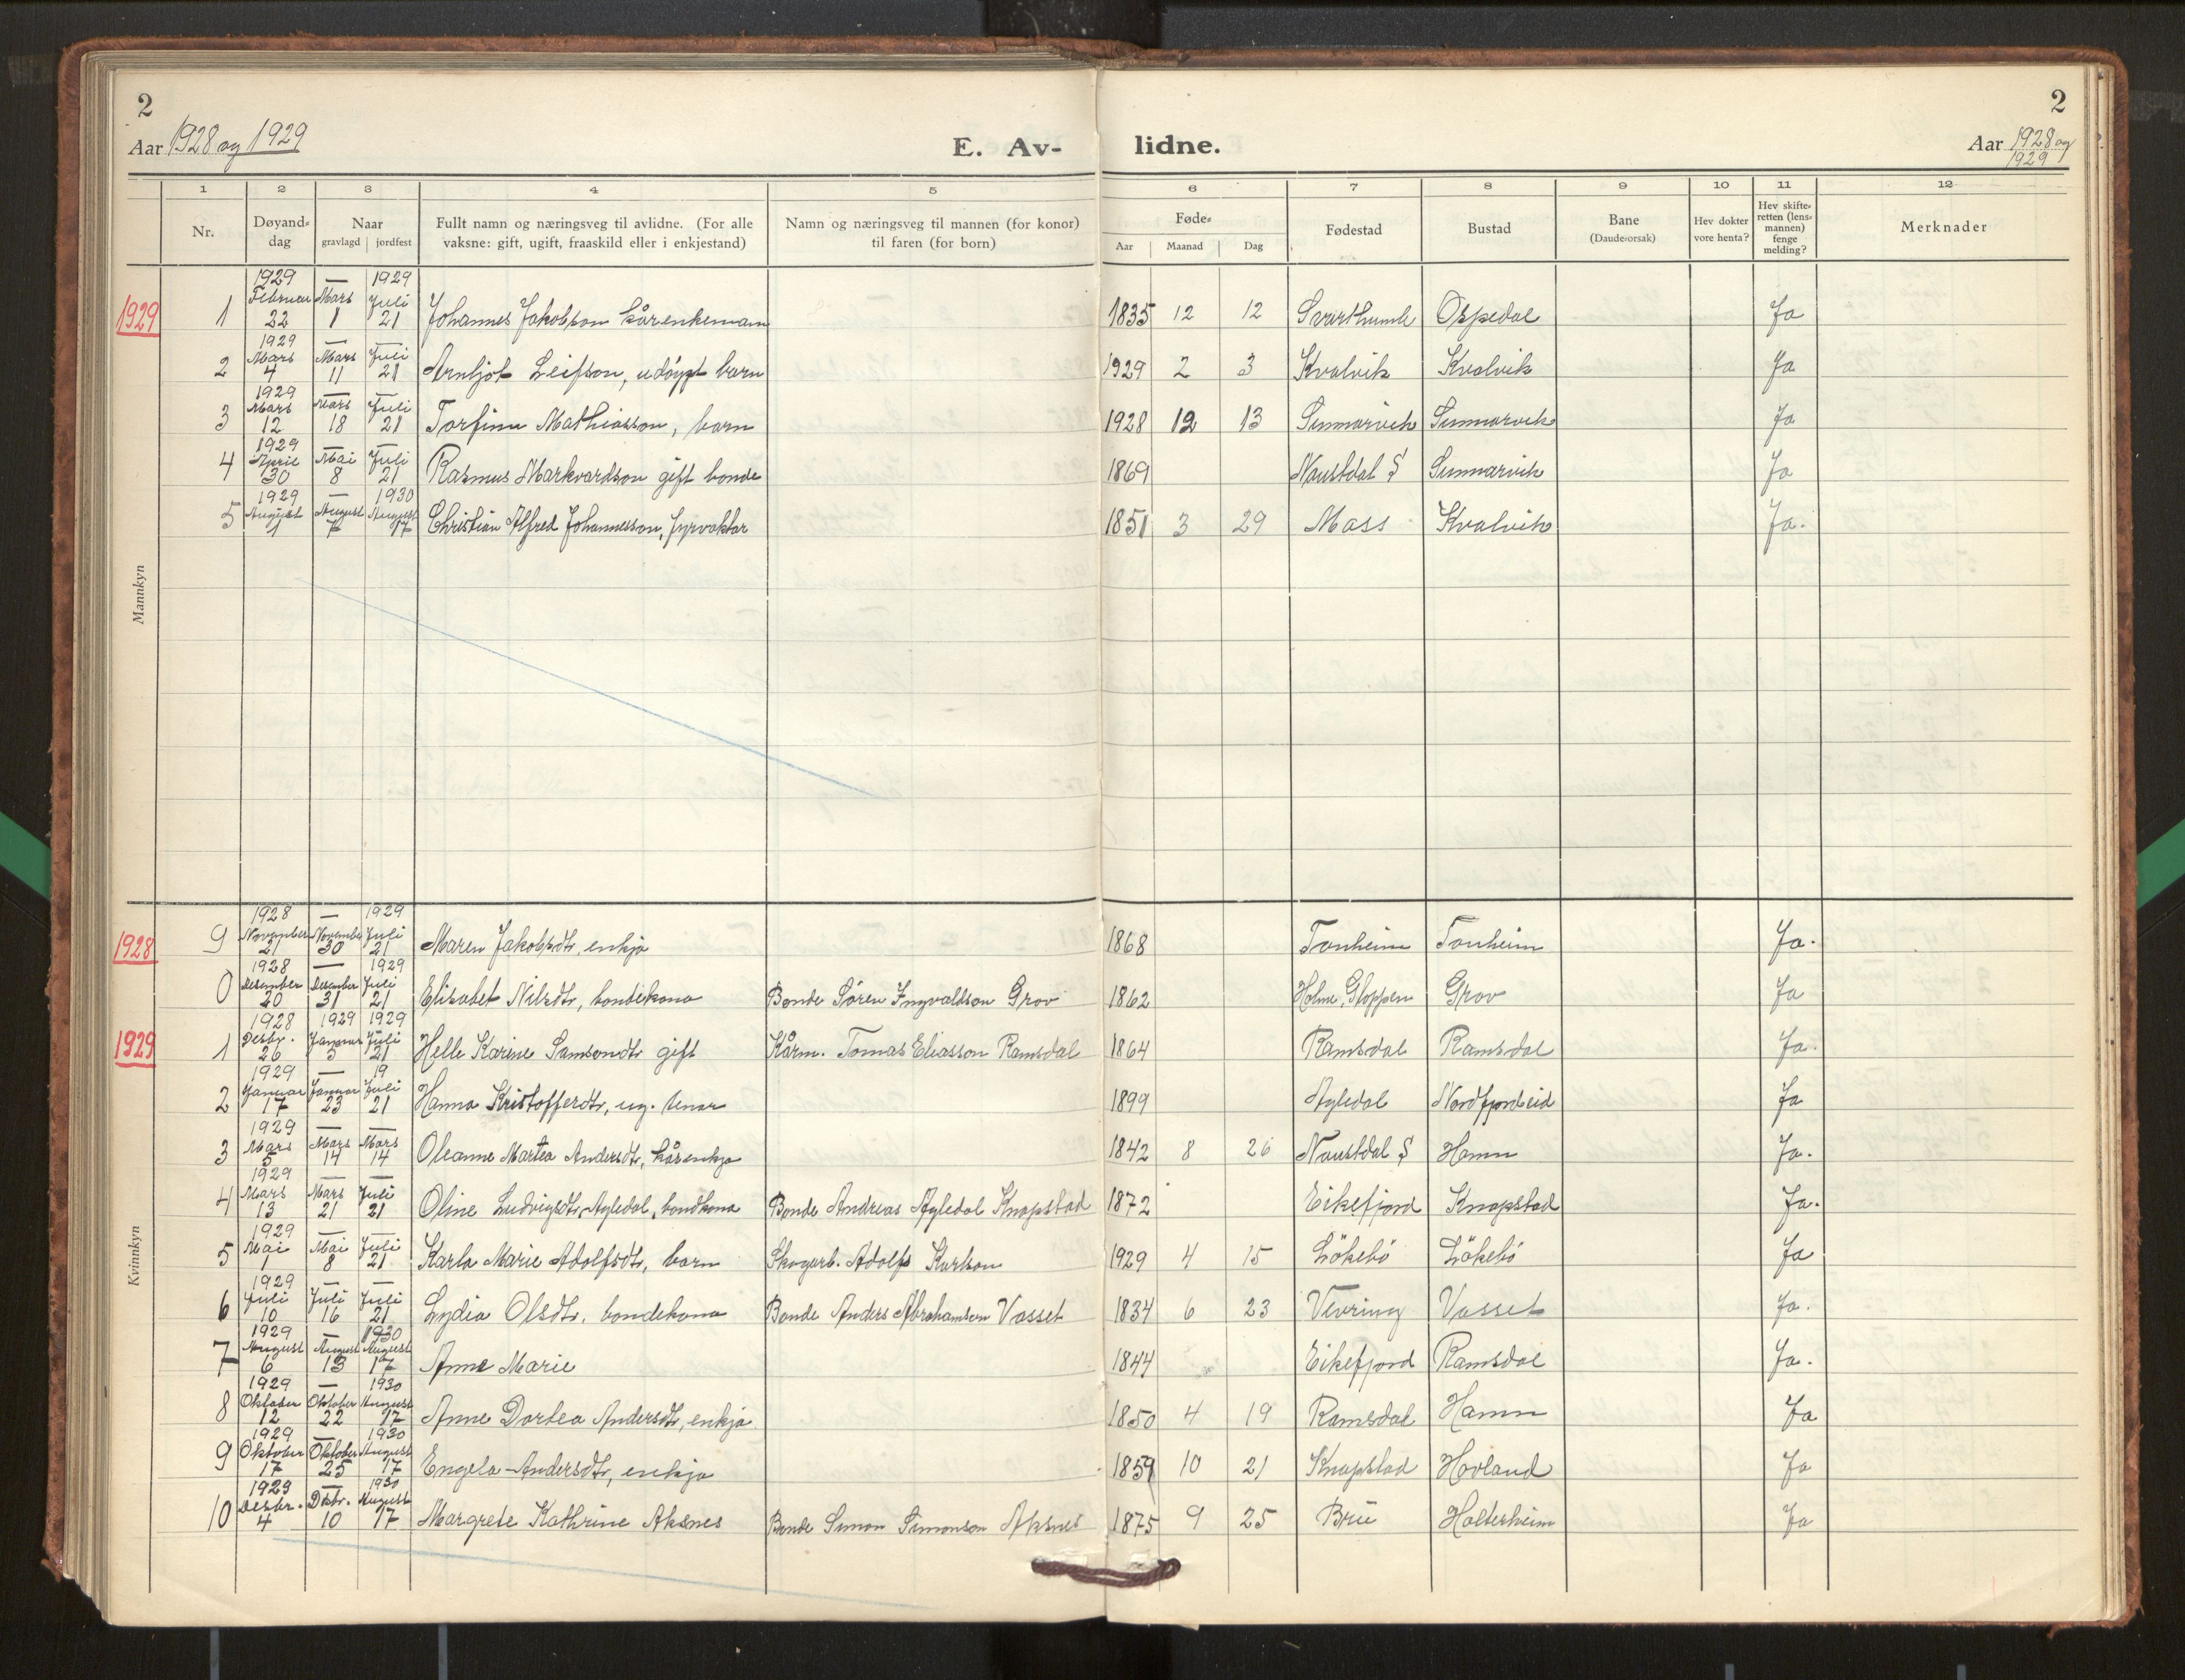 2
2
Aar 1928 og 1929
E. Av-
lidne.
Aar 1928 og
1929
1 2 3 4 5 6 7 8 9 10 11 12
Nr.
Døyand-
dag
Naar
gravlagd jordfest
Fullt namn og næringsveg til avlidne. (For alle
vaksne: gift, ugift, fraaskild eller i enkjestand)
Namn og næringsveg til mannen (for konor)
til faren (for born)
Føde-
Aar Maanad Dag
Fødestad
Bustad
Bane
(Daudeorsak)
Hev dokter
vore henta?
Hev skifte-
retten (lens-
mannen)
fenge
melding?
Merknader
Mannkyn
1929 — 1929
Februar Mars Juli
1929 1 22 1 21 Johannes Jakobson kårenkemann 1835 12 12 Svarthumle Ospedal Ja
1929 —
Mars Mars Juli
2 4 11 21 Arnljot Leifson, udöypt barn 1929 2 3 Kvalvik Kvalvik Ja
1929
Mars Mars Juli
3 12 18 21 Torfinn Mathiasson, barn 1928 12 13 Sunnarvik Sunnarvik Ja
1929
April Mai Juli
4 30 8 21 Rasmus Markvardson gift bonde 1869 Naustdal S Sunnarvik Ja
1929 — 1930
August August August
5 1 7 17 Christian Alfred Johannesson, fyrvaktar 1851 3 29 Mass Kvalvik Ja.
Kvinnkyn
1928 — 1929
November November Juli
1928 9 21 30 21 Maren Jakobsdtr, enkja 1868 Tonheim Tonheim Ja.
1928 — 1929
Desember Desember Juli
0 20 31 21 Elisabet Nilsdtr, bondekona Bonde Søren Ingvaldson Grov 1862 Holme, Gloppen Grov Ja
1928 1929 1929
Desbr. Januar Juli
1929 1 26 5 21 Helle Karine Samsondtr gift Kårm. Tomas Eliasson Ramsdal 1864 Ramsdal Ramsdal Ja.
1929 — 19
Januar Januar Juli
2 17 23 21 Hanna Kristofferdtr, ug. tenar 1899 Agledal Nordfjordeid Ja
1929
Mars Mars Mars
3 5 14 14 Oleanne Martea Andersdtr, kårenkja 1842 8 26 Naustdal S Hamn Ja.
1929
Mars Mars Juli
4 13 21 21 Oline Ludvigsdtr, Agledal, bondkona Bonde Andreas Agledal Knapstad 1872 Eikefjord Knapstad Ja.
1929
Mai Mai Juli
5 1 8 21 Karla Marie Adolfsdtr, barn Skogarb. Adolfs Karlson 1929 4 15 Lökebö Lökebö Ja
1929
Juli Juli Juli
6 10 16 21 Lydia Olsdtr. bondekona Bonde Anders Abrahamsen Vasset 1834 6 23 Vevring Vasset Ja.
1929 — 1930
August August August
7 6 13 17 Anne Marie 1844 Eikefjord Ramsdal Ja.
1929 — 1930
Oktober Oktober August
8 12 22 17 Anne Dortea Andersdtr, enkja 1850 4 19 Ramsdal Hamn Ja
1929 — 1930
Oktober Oktober August
9 17 25 17 Engela Andersdtr, enkja 1859 10 21 Knapstad Hovland Ja
1929 — 1930
Desbr. Dsbr. August
10 4 10 17 Margrete Kathrine Aksnes Bonde Simon Simonson Aksnes 1875 9 25 Bru Holterheim Ja